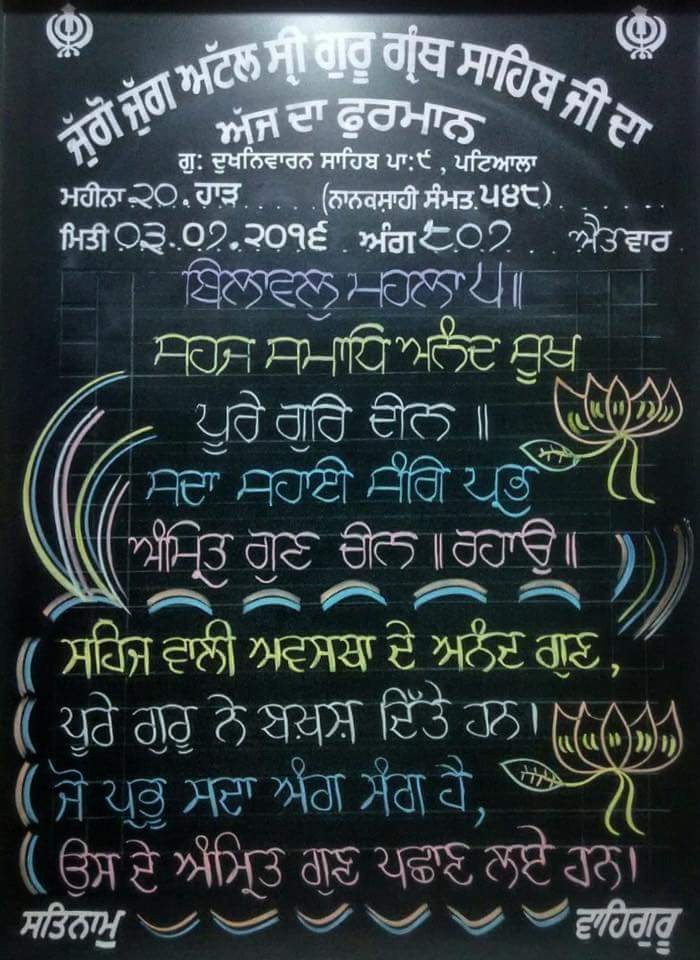 ਜੁੱਗੋ ਜੁੱਗ ਅਟੱਲ ਸ੍ਰੀ ਗੁਰੂ ਗ੍ਰੰਥ ਸਾਹਿਬ ਜੀ ਦਾ
ਅੱਜ ਦਾ ਫੁਰਮਾਨ
ਗੁ: ਦੁਖਨਿਵਾਰਨ ਸਾਹਿਬ ਪਾ:੯ , ਪਟਿਆਲਾ
ਮਹੀਨਾ ੨੦. ਹਾੜ ..... (ਨਾਨਕਸ਼ਾਹੀ ਸੰਮਤ. ੫੪੮) .....
ਮਿਤੀ ੦੩.੦੭.੨੦੧੬ ਅੰਗ ੮੦੭ ... ਐਤਵਾਰ
ਬਿਲਾਵਲੁ ਮਹਲਾ ੫॥
ਸਹਜ ਸਮਾਧਿ ਅਨੰਦ ਸੂਖ
ਪੂਰੇ ਗੁਰਿ ਦੀਨ ॥
ਸਦਾ ਸਹਾਈ ਸੰਗਿ ਪ੍ਰਭ
ਅੰਮ੍ਰਿਤ ਗੁਣ ਚੀਨ ॥ ਰਹਾਉ ॥
ਸਹਿਜ ਵਾਲੀ ਅਵਸਥਾ ਦੇ ਅਨੰਦ ਗੁਣ,
ਪੂਰੇ ਗੁਰੂ ਨੇ ਬਖ਼ਸ਼ ਦਿੱਤੇ ਹਨ।
ਜੋ ਪ੍ਰਭੂ ਸਦਾ ਅੰਗ ਸੰਗ ਹੈ,
ਉਸ ਦੇ ਅੰਮ੍ਰਿਤ ਗੁਣ ਪਛਾਣ ਲਏ ਹਨ।
ਸਤਿਨਾਮੁ ਵਾਹਿਗੁਰੂ